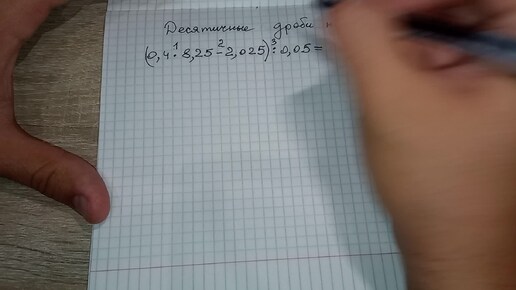 Десятичные дроби
(0,4 · 8,25 - 2,025) : 0,05 =
1 2 3